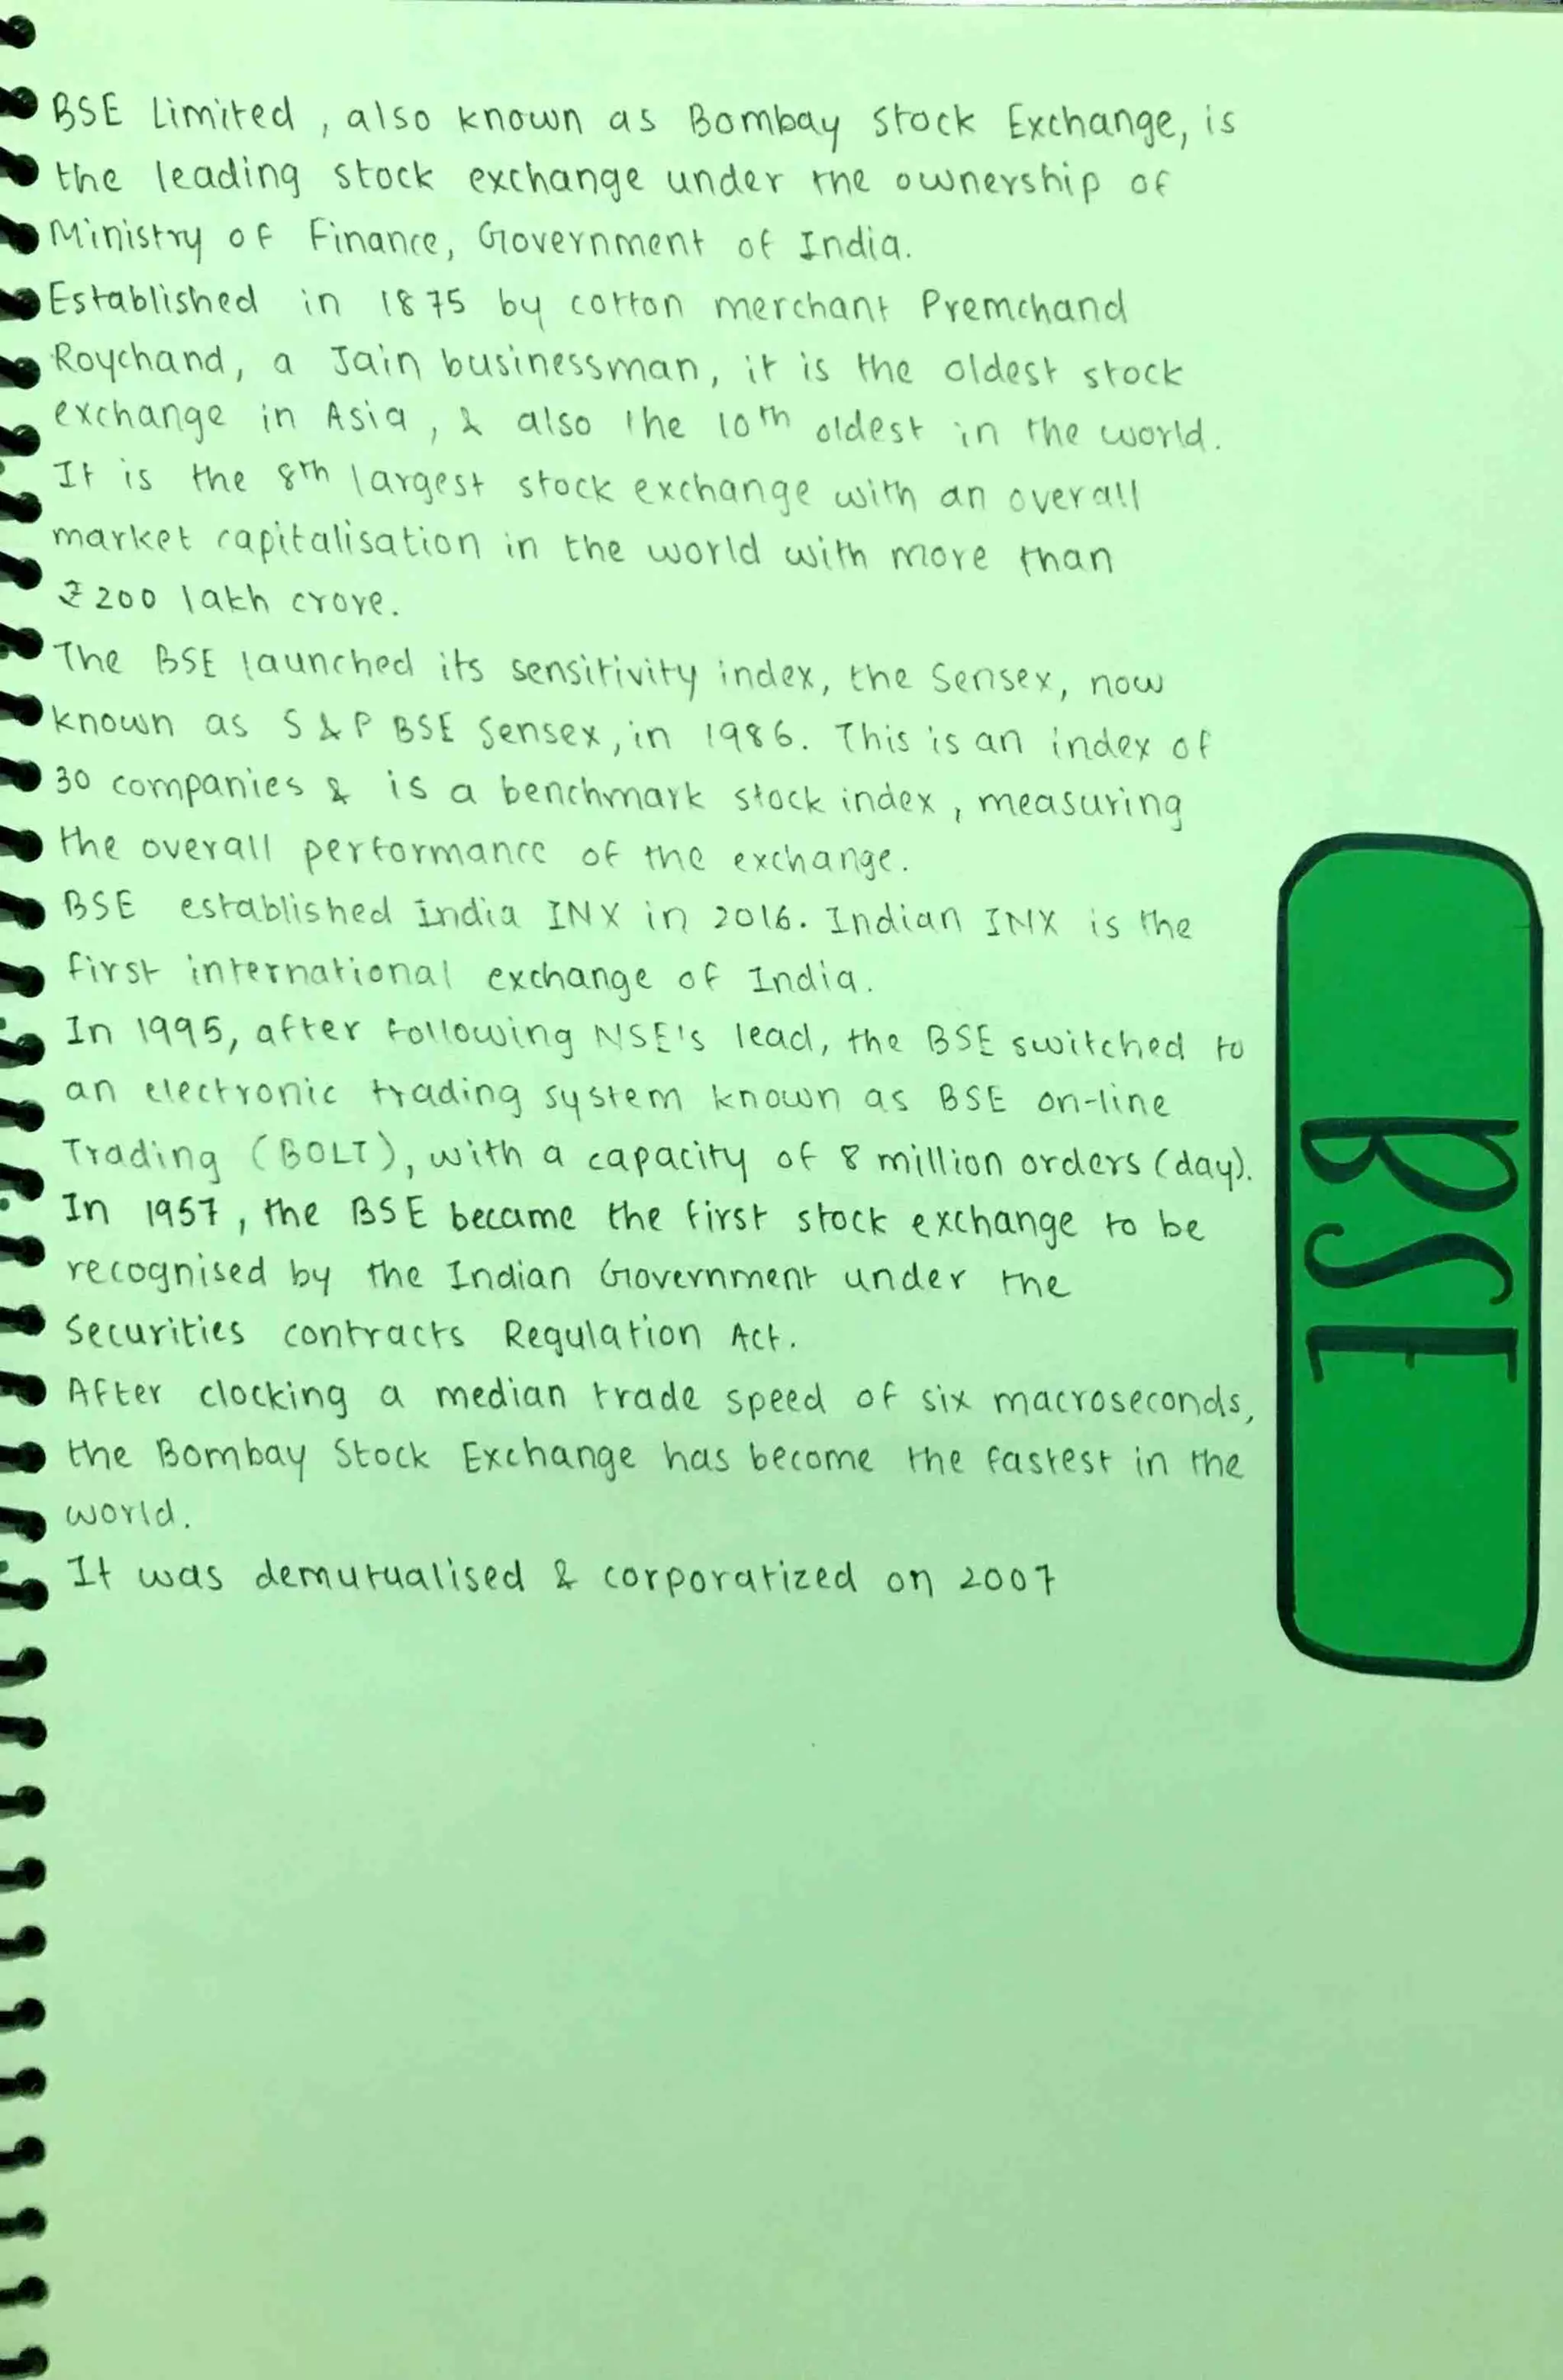 BSE Limited, also known as Bombay Stock Exchange, is
the leading stock exchange under the ownership of
Ministry of Finance, Government of India.
Established in 1875 by cotton merchant Premchand
Roychand, a Jain businessman, it is the oldest stock
exchange in Asia, & also the 10th oldest in the world.
It is the 8th largest stock exchange with an overall
market capitalisation in the world with more than
₹200 lakh crore.
The BSE launched its sensitivity index, the Sensex, now
known as S&P BSE Sensex, in 1986. This is an index of
30 companies & is a benchmark stock index, measuring
the overall performance of the exchange.
BSE established India INX in 2016. Indian INX is the
first international exchange of India.
In 1995, after following NSE's lead, the BSE switched to
an electronic trading system known as BSE on-line
Trading (BOLT), with a capacity of 8 million orders (day).
In 1957, the BSE became the first stock exchange to be
recognised by the Indian Government under the
Securities contracts Regulation Act.
After clocking a median trade speed of six macroseconds,
the Bombay Stock Exchange has become the fastest in the
world.
It was demutualised & corporatized on 2007
BSE